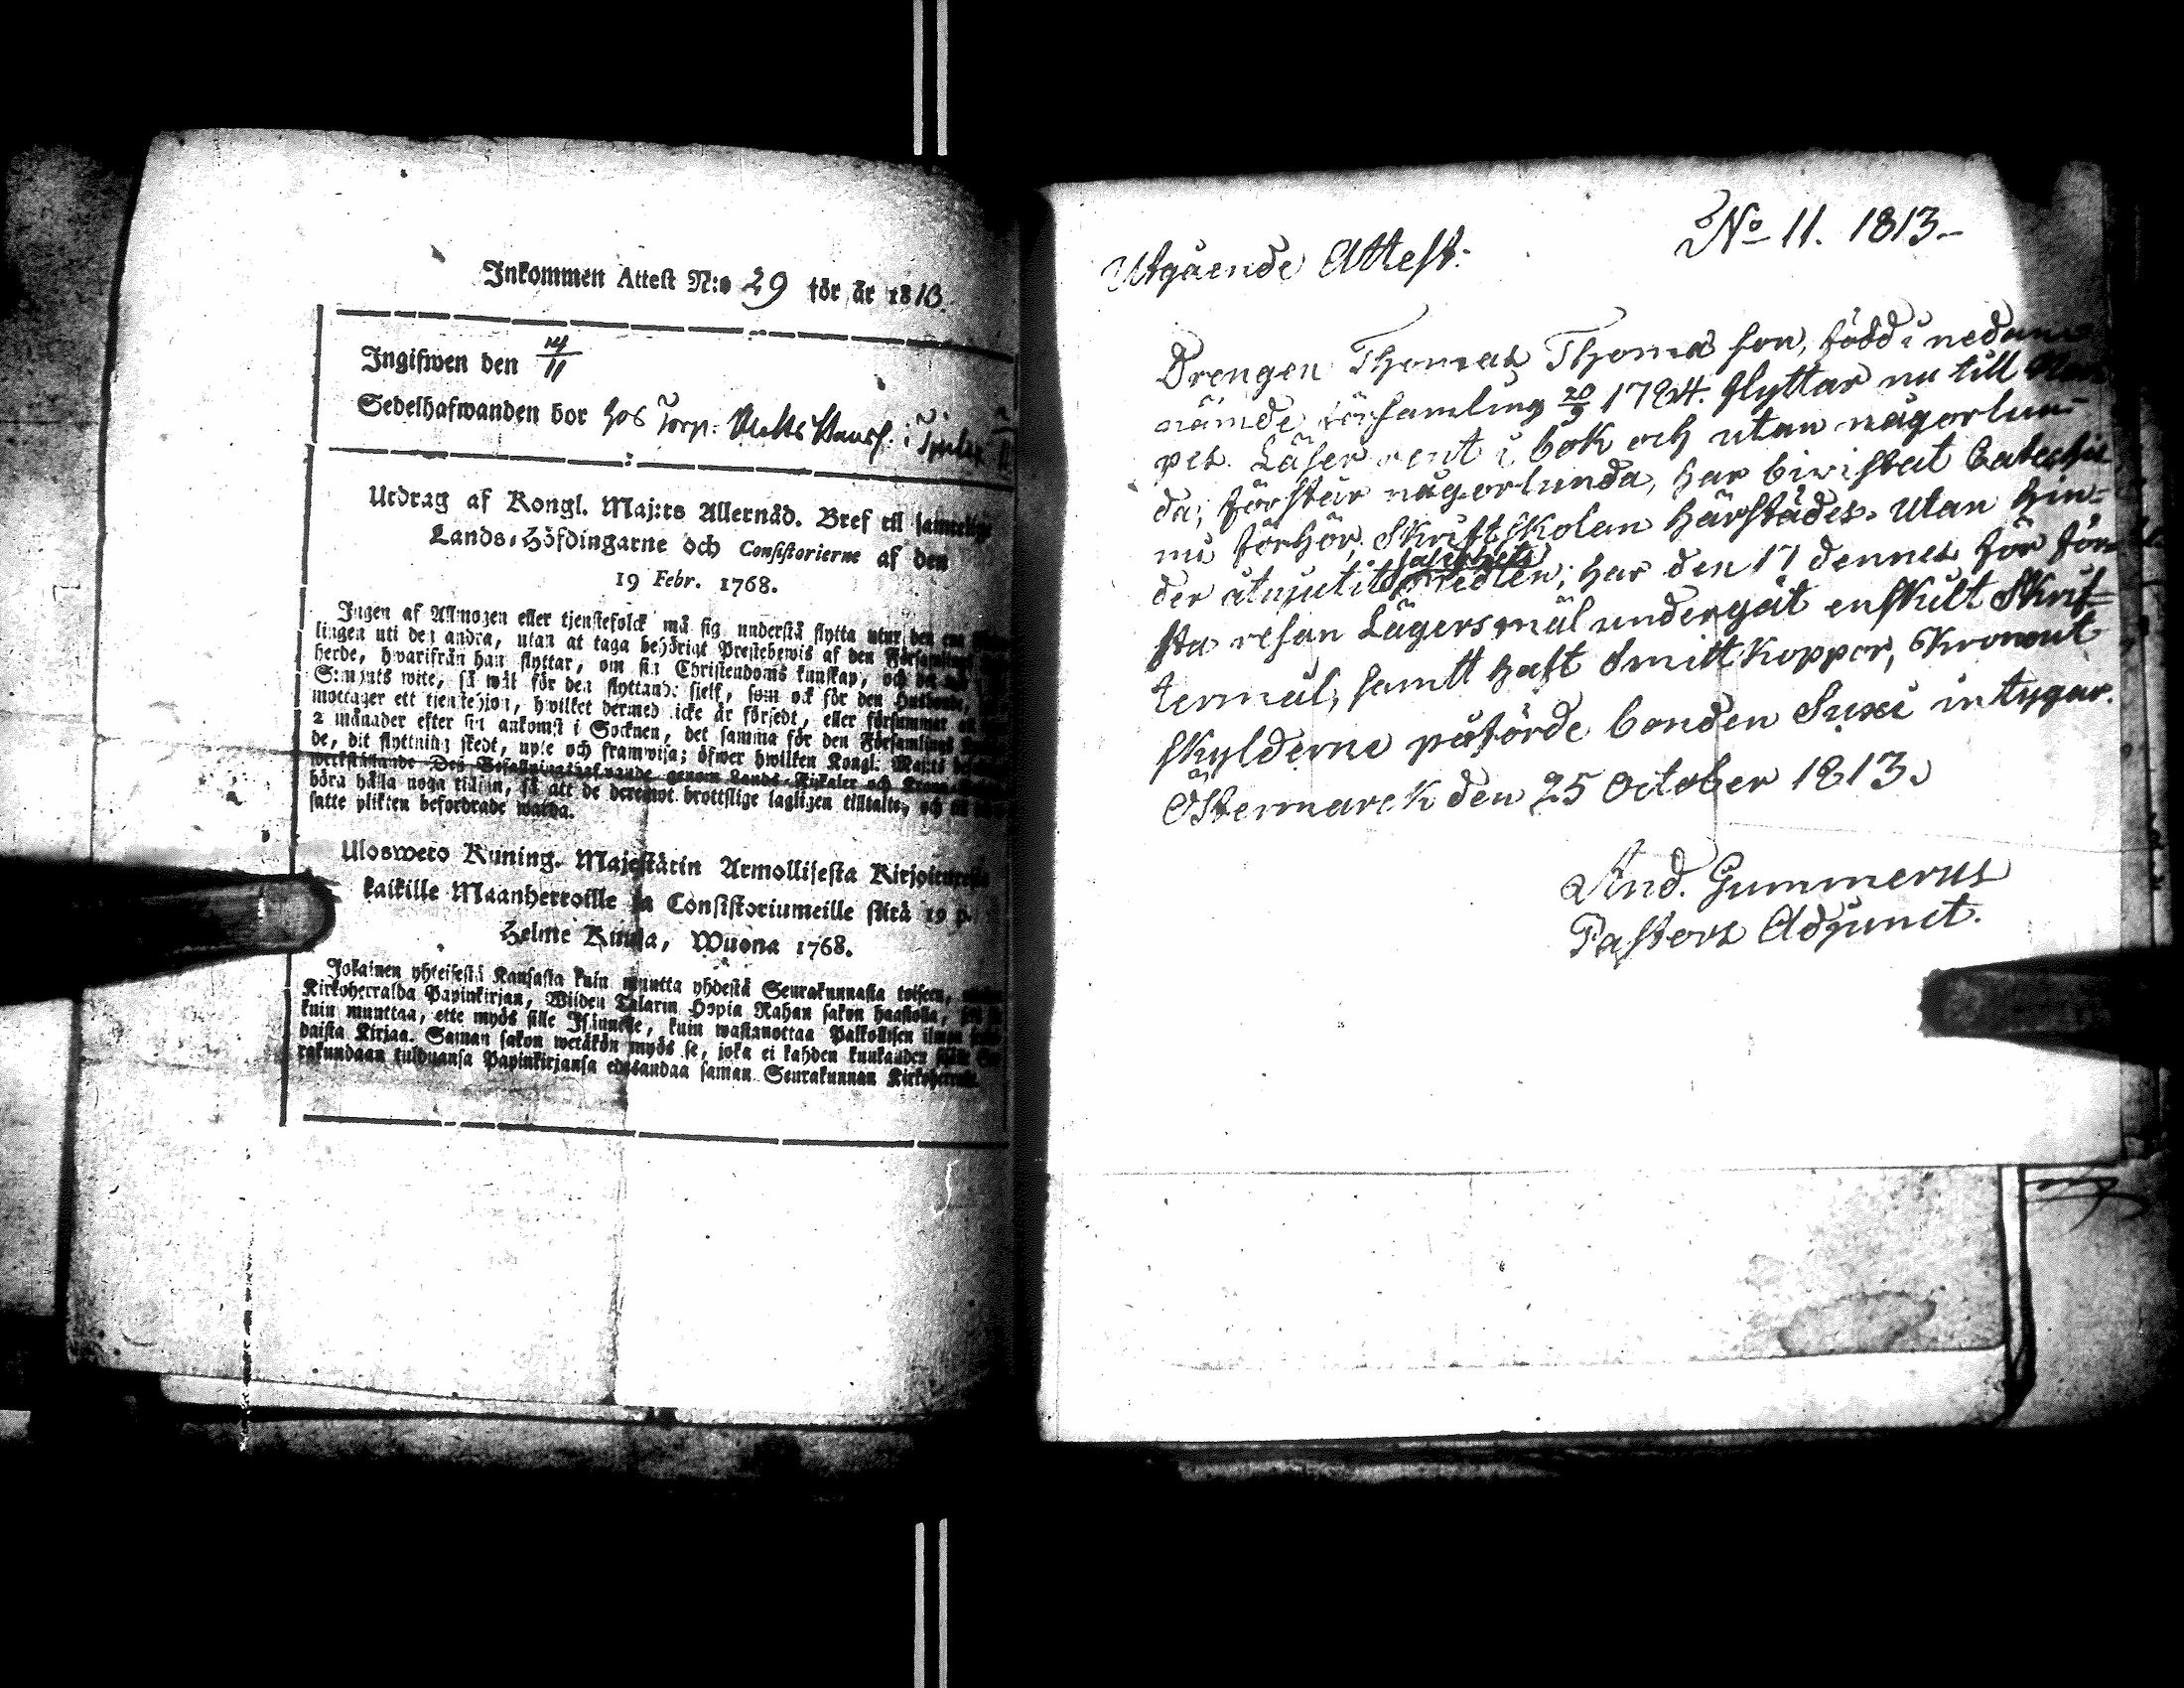 Inkommen Attest N:o 29 för år 1813.
Ingifwen den 14/11
Sedelhafwanden bor hos Torp. Matts i
Utdrag af Kongl. Maj:ts Allernåd. Bref til samtelige
Lands-Höfdingarne och Consistorierne af den
19 Febr. 1768.
Ingen af Allmogen eller tjenstefolck må sig understå flytta utur den ena
lingen uti den andra, utan at taga behörigt Prestebewis af den Församlings
herde, hvarifrån han flyttar, om sin Christendoms kunskap, och
S:mynts wite, så wäl för den flyttande sielf, som ock för den Husbonde,
mottager ett tjenstehjon, hwilket dermed icke är försedt, eller försummar
2 månader efter sin ankomst i Socknen, det samma för den Församlings
de, dit flyttning skedt, upte och framwisa; öfwer hwilken Kongl. Maj:ts
werkställande Des Befallningshafwande genom Lands-Fiskaler och Krono
böra hålla noga tillsyn, så att de deremot brottslige lagligen tilltalte, och
satte plikten befordrade warda.
Ulosweto Kuning. Majestätin Armollisesta Kirjoituxesta
kaikille Maanherroille ja Consistoriumeille siitä 19 p.
Helme Kuusa, Wuona 1768.
Jokainen yhteisestä Kansasta kuin muutta yhdestä Seurakunnasta toiseen,
Kirkoherralda Papinkirjan, Wiiden Talarin Hopia Rahan sakon haastolla,
kuin muuttaa, ette myös sille Isännälle, kuin wastanottaa Palkollisen ilman
daista Kirjaa. Saman sakon wetäkön myös se, joka ei kahden kuukauden
rakundaan tulduansa Papinkirjansa edesandaa saman Seurakunnan Kirkoherralle.
No 11. 1813.
Utgående Attest:
Drengen Thomas Thomas son, född i nedan
nämde församling 20/9 1784. flyttar nu till
pes. Läser rent i bok och utan någorlun-
da; förstår någorlunda, har biwistat Cateches
mi förhör, Skriftskolan härstädes. Utan hin-
der åtnjutit salighets medlen; har den 17 dennes för för-
sta resan Lägersmål undergåt enskilt Skrif-
termål, samt haft Smittkoppor, Kronout-
skylderne påförde bonden Suxi intygar.
Östermarck den 25 October 1813.
And. Gummerus
Pastors Adjunct.